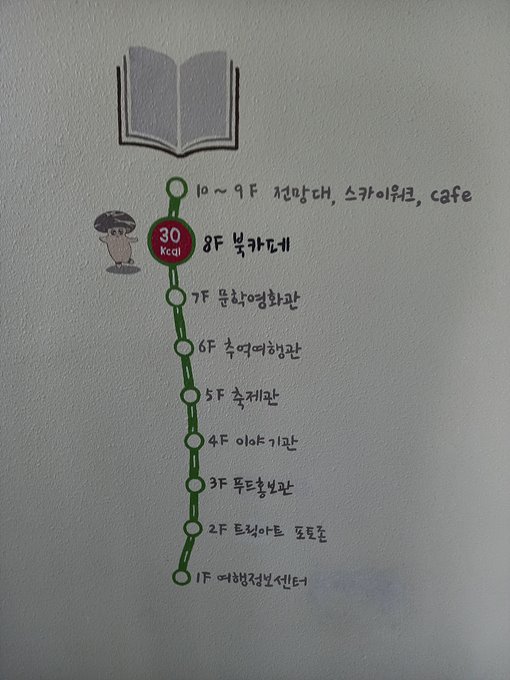 10~9F 전망대, 스카이워크, cafe
30
Kcal
8F 북카페
7F 문학영화관
6F 추억여행관
5F 축제관
4F 이야기관
3F 푸드홍보관
2F 트릭아트 포토존
1F 여행정보센터